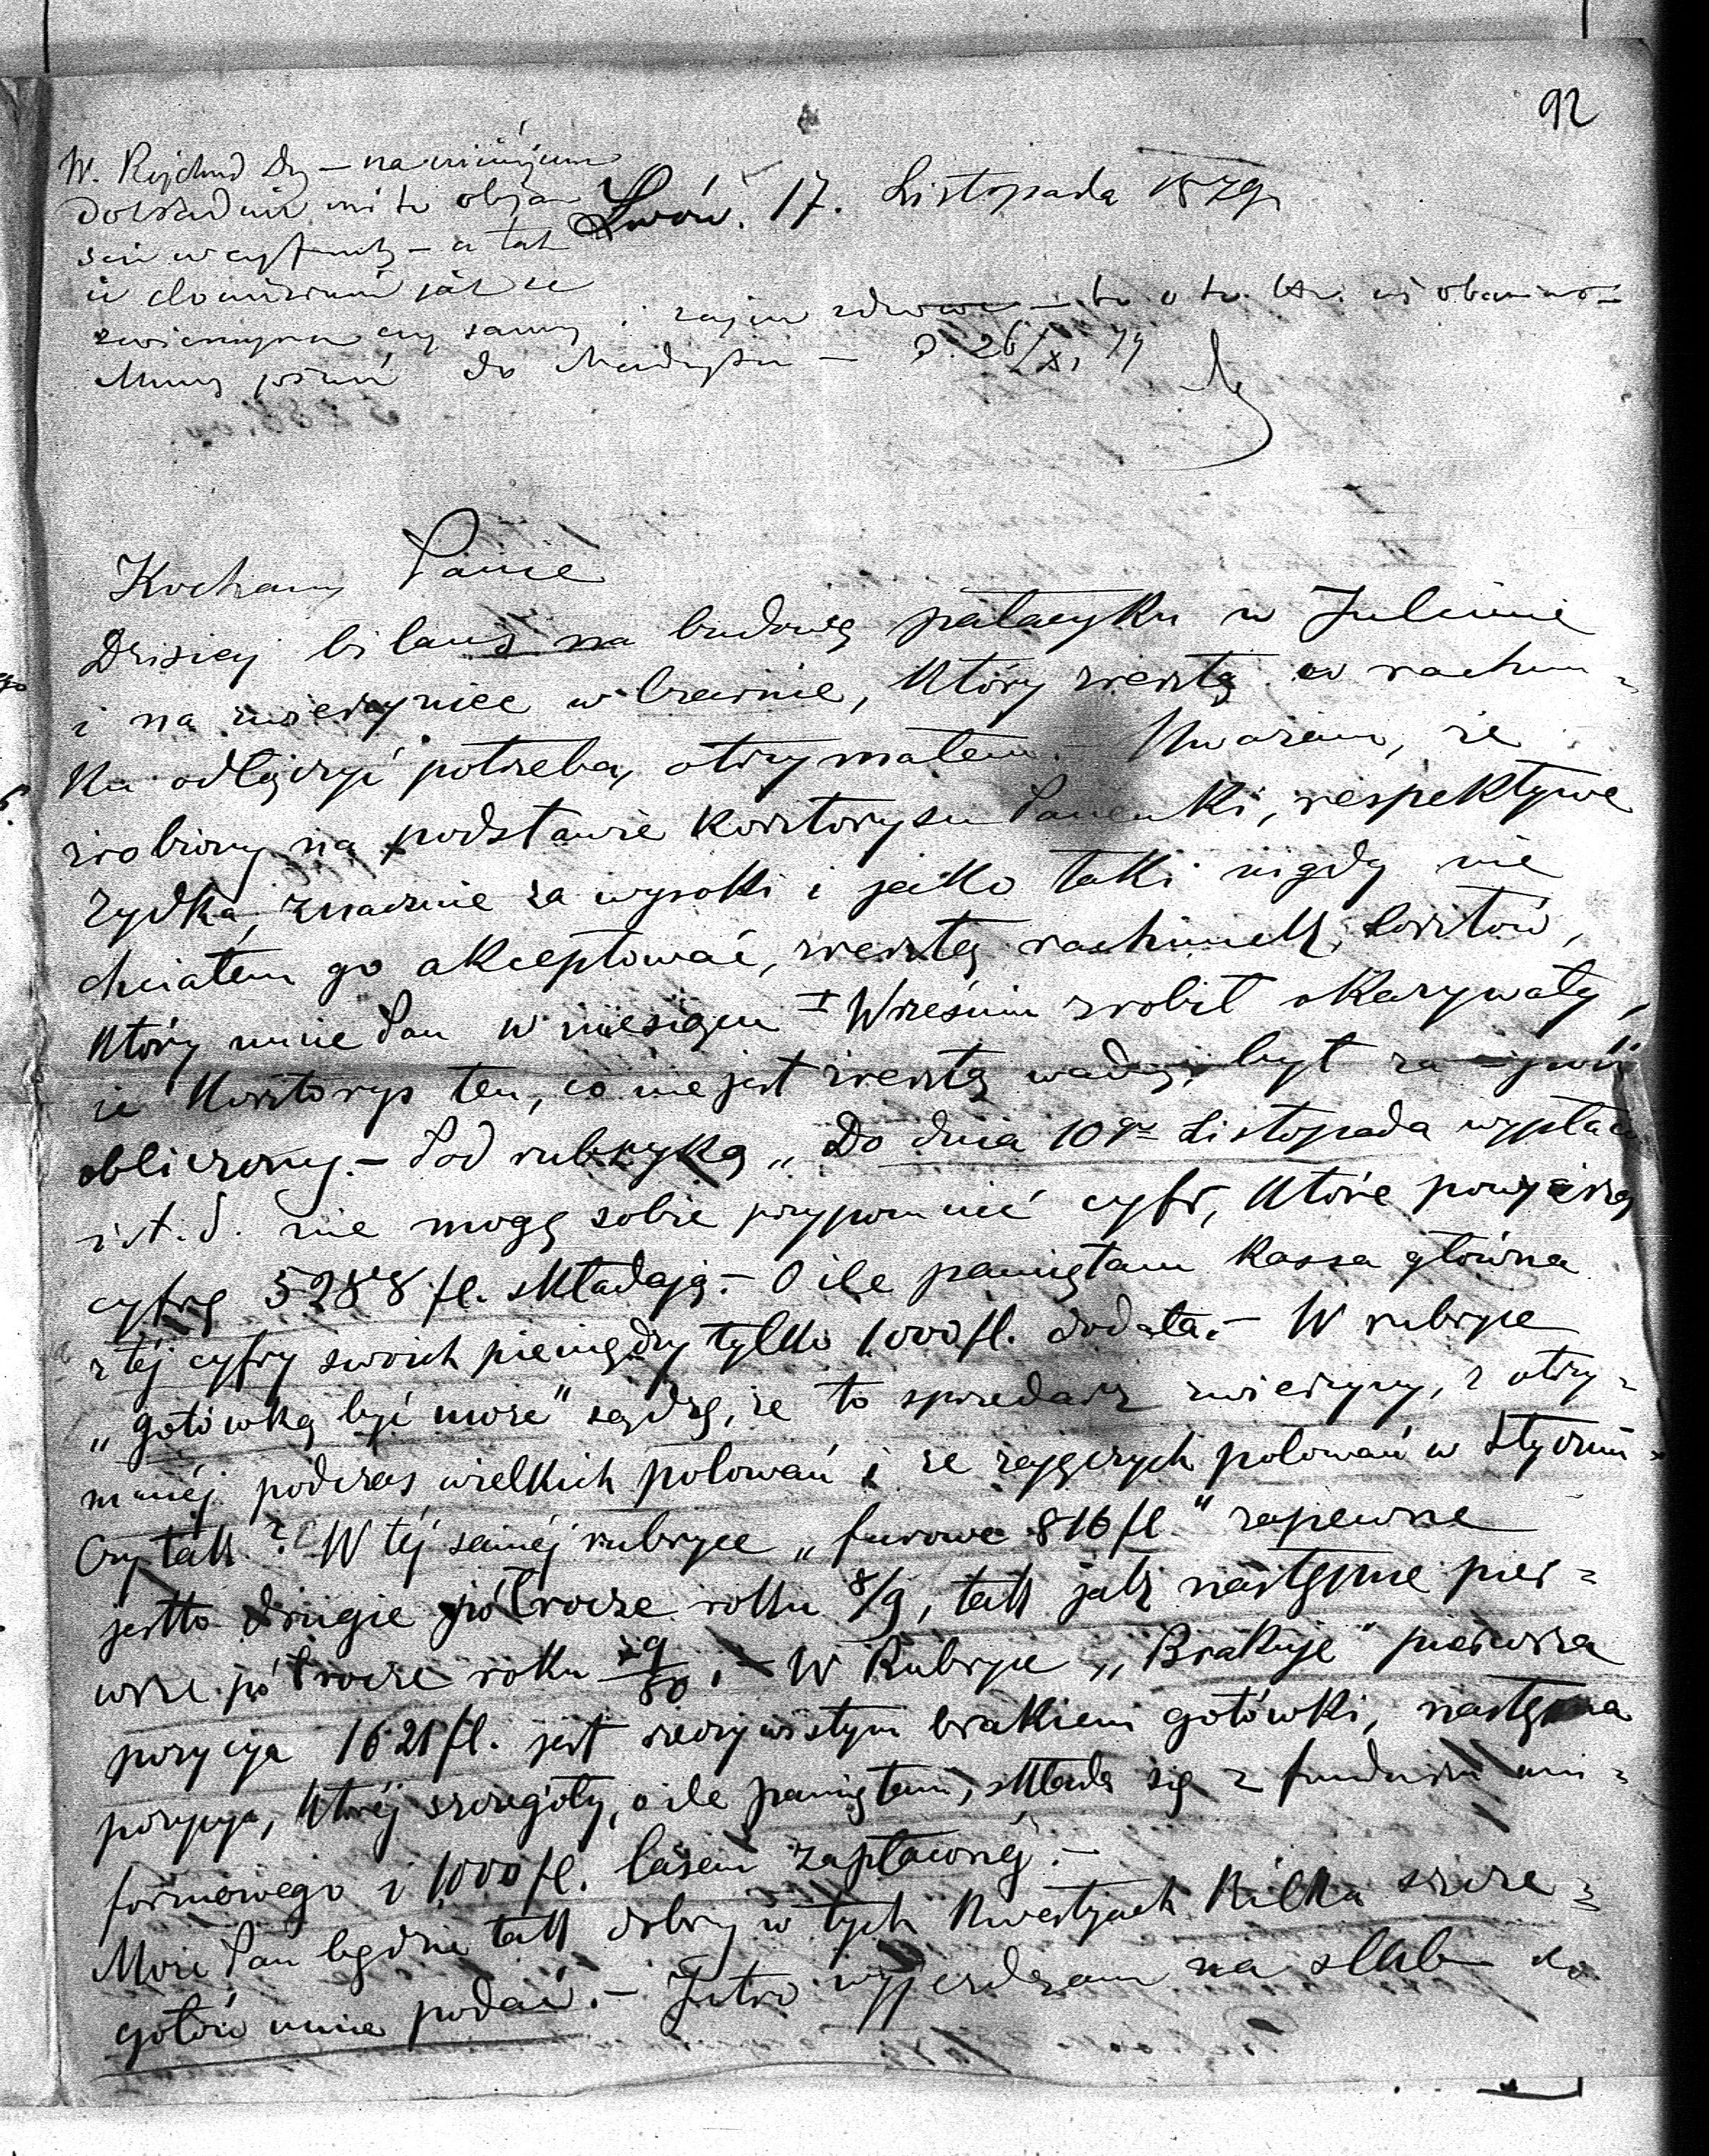 92
W. Rejchard Dy — na
dokładnie mi te obja
cyframi — a tak
Lwów. 17. Listopada 1879
i to
Muszę posłać do — d. 26/XI 79
Kochany Panie
Dzisiej bilans na budowę pałacyku w Julinie
i na zwierzyniec w Brzezinie, który zresztą w rachun=
ku odłączyć potrzeba, otrzymałem. — Uważam, że
zrobiony na podstawie kosztorysu Panenki, respektywe
Żydka, znacznie za wysoki i jako taki nigdy nie
chciałem go akceptować, zresztą rachunek kosztów,
który mnie Pan w miesiącu Wrześniu zrobił okazywały,
że kosztorys ten, co nie jest zresztą wadą, był za
obliczony. — Pod rubryką „Do dnia 10go Listopada wypłac
i t. d. nie mogę sobie przypomnieć cyfr, które powyższą
cyfrę 5288 fl. składają. — O ile pamiętam Kassa główna
z téj cyfry swoich pieniędzy tylko 1000 fl. dodała. — W rubryce
„gotówką być może" sądzę, że to sprzedaż zwierzyny, z otrzy=
manéj podczas wielkich polowań i ze zajęczych polowań w Styczniu
Czy tak? W téj saméj rubryce „furowe 816 fl." zapewne
jestto drugie półrocze roku 8/9, tak jak następne pier=
wsze półrocze roku 79/80. — W Rubryce „Brakuje" pierwsza
pozycya 1621 fl. jest rzeczywistym brakiem gotówki, następna
pozycya, któréj szczegóły, o ile pamiętam, składa się z funduszu uni=
formowego i 1000 fl. lasem zapłaconéj. —
Może Pan będzie tak dobry w tych kwestyach kilka szcze=
gółów mnie podać. — Jutro wyjeżdżam na ślub do